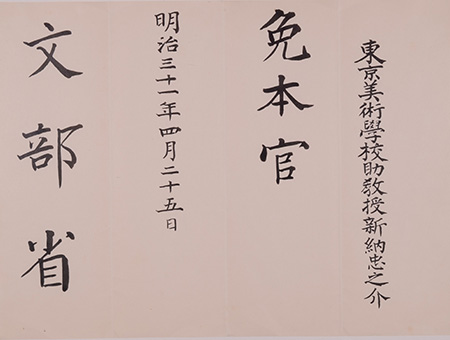 東京美術學校助敎授新納忠之介
免本官
明治三十一年四月二十五日
文部省